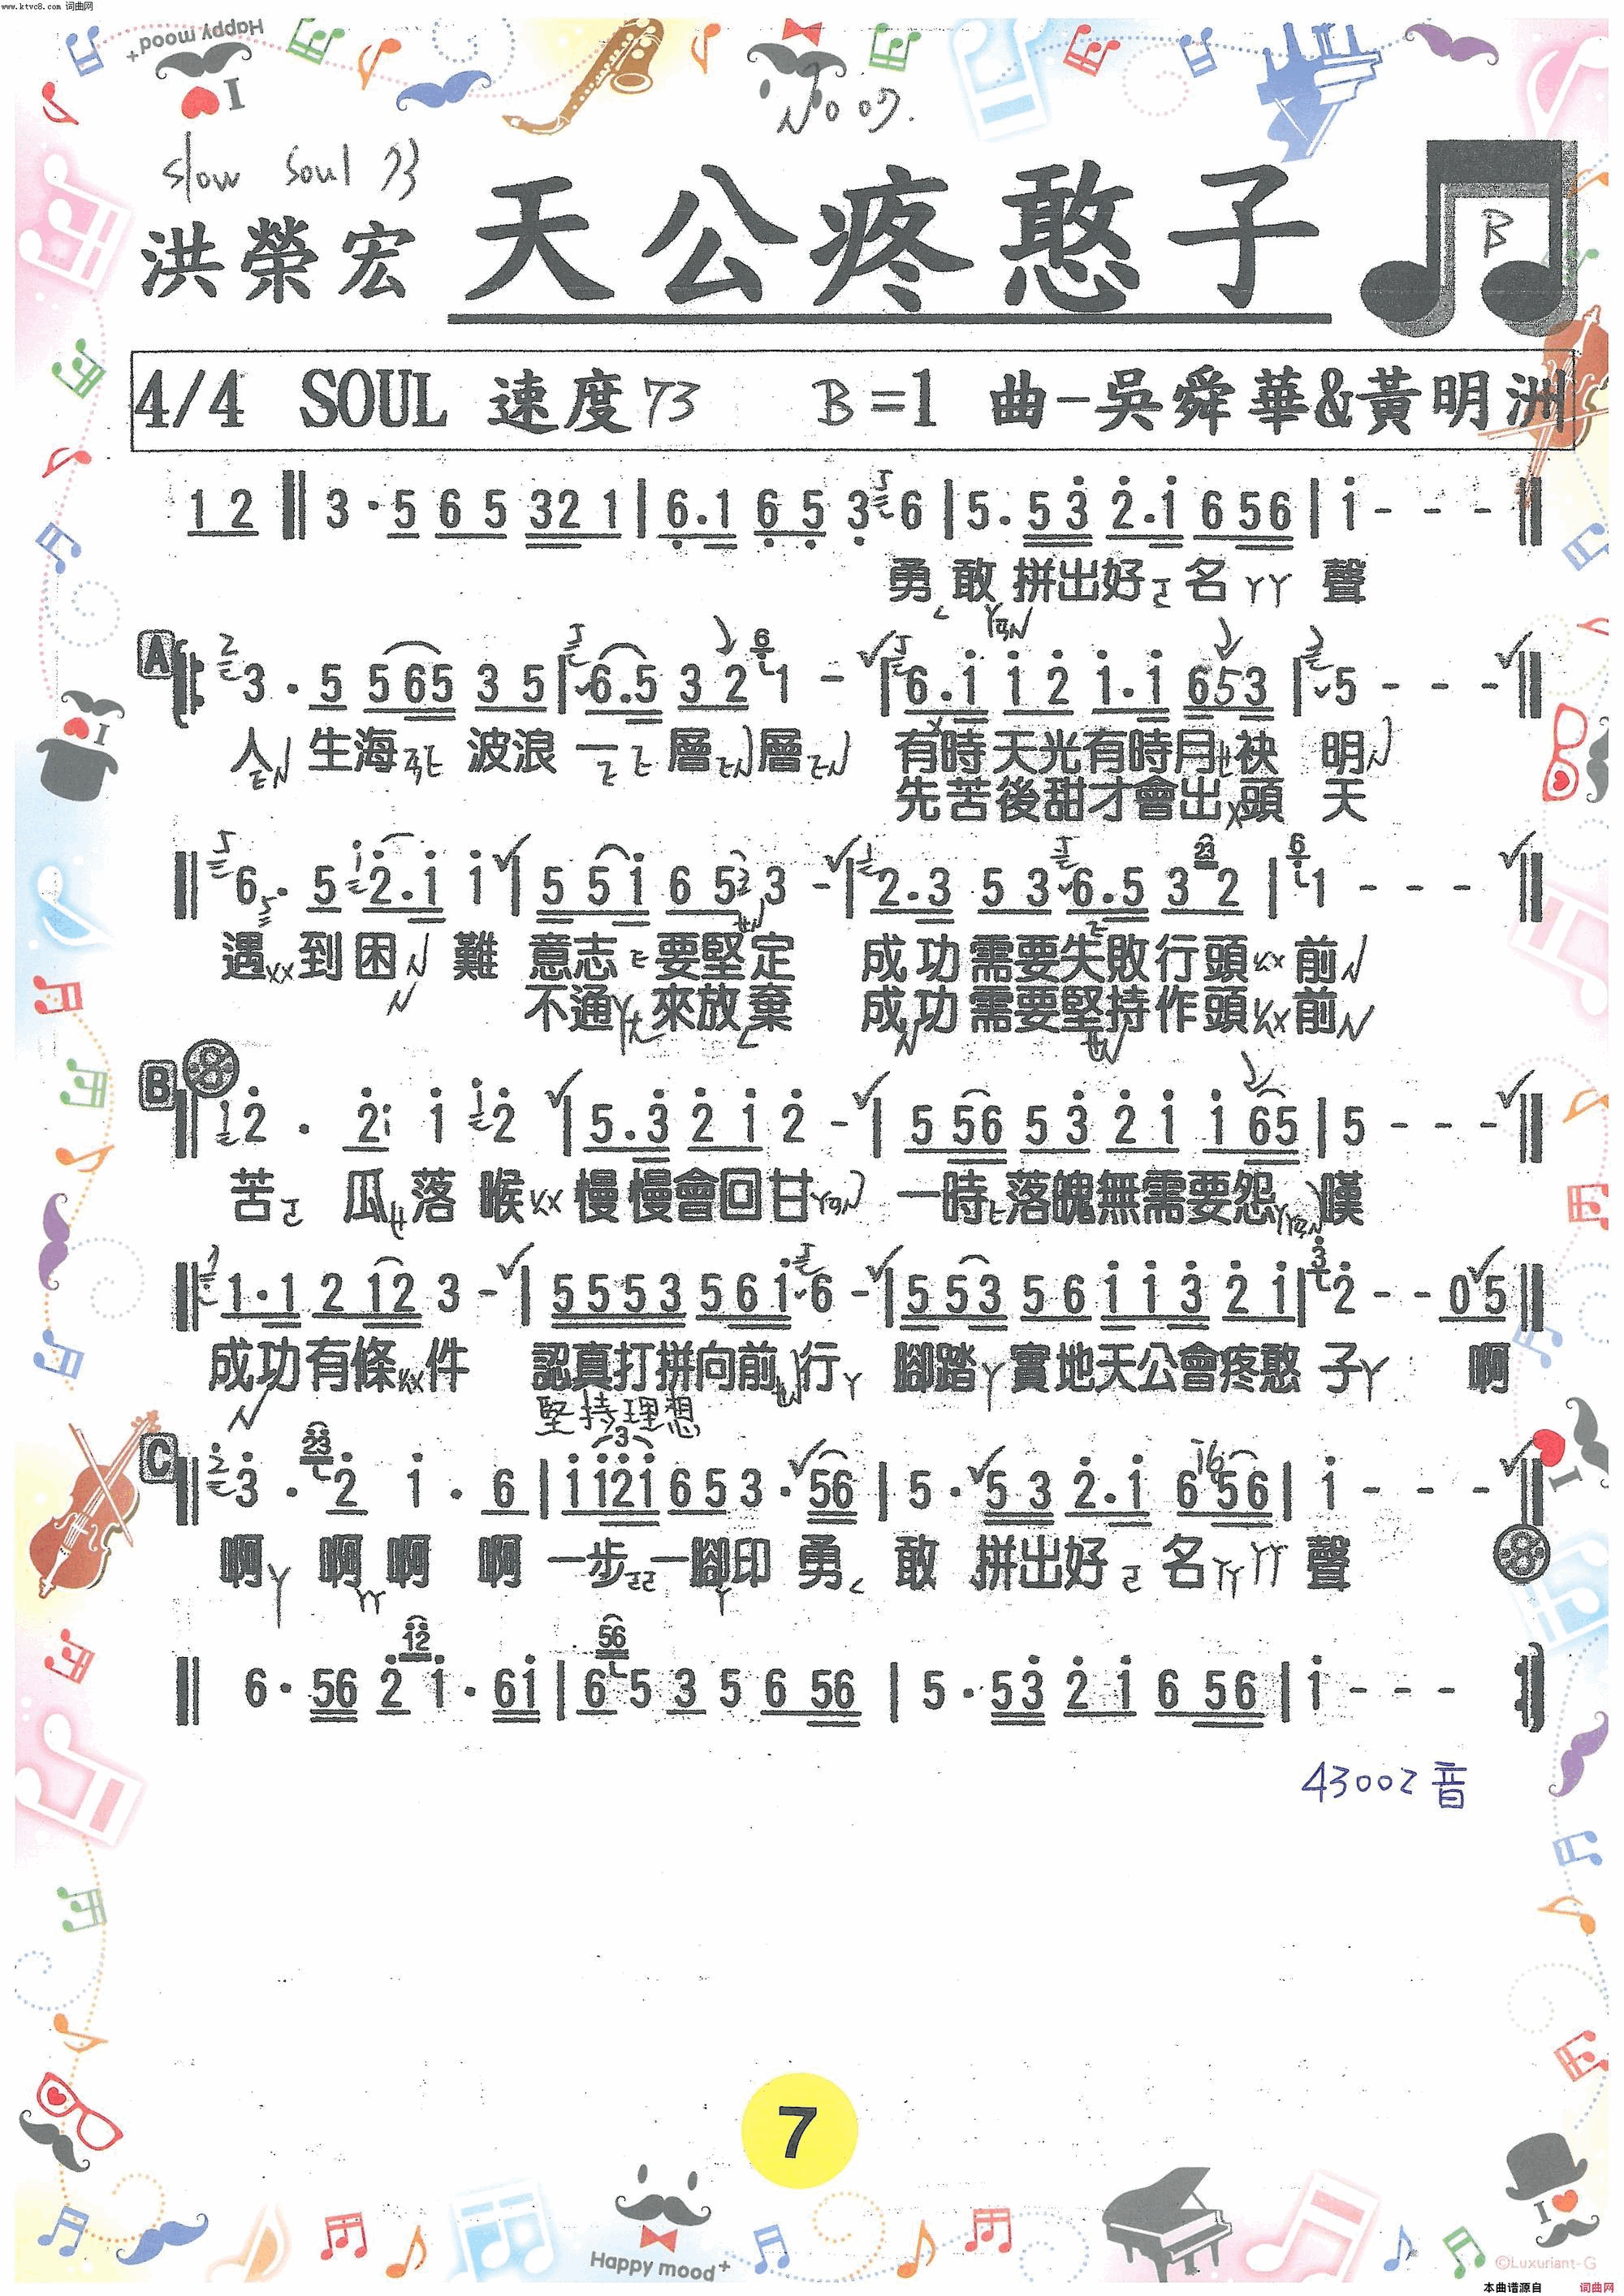 www.ktvc8.com 词曲网
Happy mood+
I
No 07.
slow soul 73
洪榮宏 天公疼憨子
B
4/4 SOUL 速度 73 B=1 曲-吳舜華&黃明洲
1 2 ‖ 3 · 5 6 5 32 1 | 6̣.1 6̣ 5̣ 3̣ 6 | 5 . 5 3̇ 2̇.1̇ 6 56 | 1̇ - - - ‖
勇敢拼出好名聲
A
3 . 5 565 3 5 | 6.5 3 2 1 - | 6.1̇ 1̇ 2̇ 1̇.1̇ 653 | 5 - - - ‖
人生海波浪一層層 有時天光有時月袂明
先苦後甜才會出頭天
‖ 6 . 5 2̇.1̇ 1̇ | 5 51̇ 6 5 3 - | 2.3 5 3 6.5 3 2 | 1 - - - ‖
遇到困難意志要堅定 成功需要失敗行頭前
不通來放棄 成功需要堅持作頭前
B
‖ 2̇ . 2̇1̇ 1̇ 2̇ | 5.3̇ 2̇ 1̇ 2̇ - | 5 56 5 3̇ 2̇ 1̇ 1̇ 65 | 5 - - - ‖
苦瓜落喉慢慢會回甘 一時落魄無需要怨嘆
‖ 1.1 2 12 3 - | 5553 5 6 1̇ 6 - | 5 53 5 6 1̇ 1̇ 3̇ 2̇ 1̇ | 2̇ - - 0 5 ‖
成功有條件 認真打拼向前行 腳踏實地天公會疼憨子 啊
堅持理想
C
‖ 3̇ . 2̇ 1̇ . 6 | 1̇1̇2̇1̇ 6 5 3 . 56 | 5 . 5 3 2̇.1̇ 6 56 | 1̇ - - - ‖
啊啊啊啊一步一腳印勇敢拼出好名聲
‖ 6 · 56 2̇ 1̇ . 61̇ | 6 5 3 5 6 56 | 5 . 53̇ 2̇ 1̇ 6 56 | 1̇ - - - ‖
43002 音
7
Happy mood+
I
©Luxuriant-G
本曲谱源自 词曲网